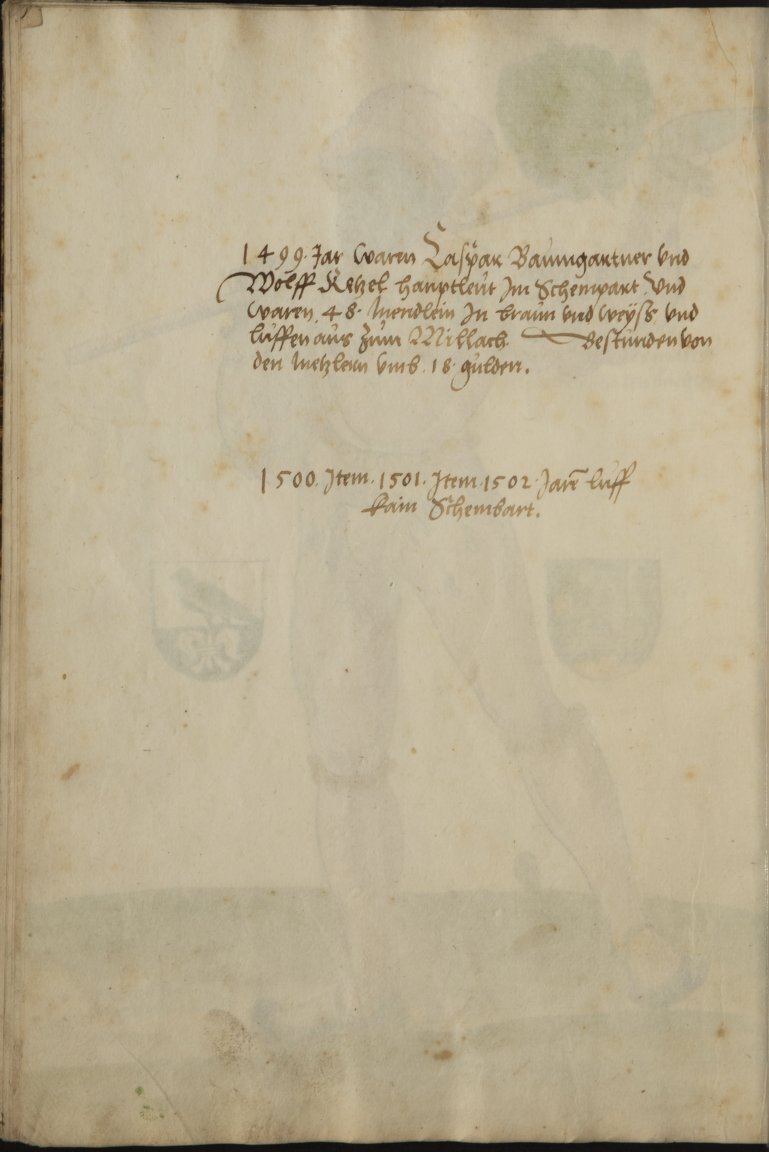 1499. Jar waren Caspar Baumgartner vnd
Wolff Ketzel hauptleut Jm Schempart Vnd
waren. 48. Mendlein Jn braun vnd weyss vnd
luffen aus zum Millach bestunden von
den Metzlern vmb. 18. gulden.
1500. Jtem. 1501. Jtem. 1502. Jarē luff
kain Schembart.